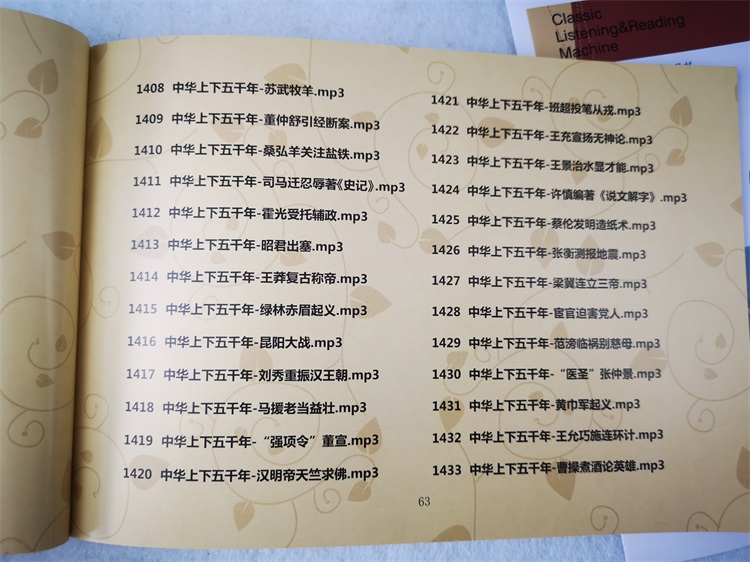 Classic
Listening&Reading
Machine
1408 中华上下五千年-苏武牧羊.mp3
1409 中华上下五千年-董仲舒引经断案.mp3
1410 中华上下五千年-桑弘羊关注盐铁.mp3
1411 中华上下五千年-司马迁忍辱著《史记》.mp3
1412 中华上下五千年-霍光受托辅政.mp3
1413 中华上下五千年-昭君出塞.mp3
1414 中华上下五千年-王莽复古称帝.mp3
1415 中华上下五千年-绿林赤眉起义.mp3
1416 中华上下五千年-昆阳大战.mp3
1417 中华上下五千年-刘秀重振汉王朝.mp3
1418 中华上下五千年-马援老当益壮.mp3
1419 中华上下五千年-“强项令”董宣.mp3
1420 中华上下五千年-汉明帝天竺求佛.mp3
1421 中华上下五千年-班超投笔从戎.mp3
1422 中华上下五千年-王充宣扬无神论.mp3
1423 中华上下五千年-王景治水显才能.mp3
1424 中华上下五千年-许慎编著《说文解字》.mp3
1425 中华上下五千年-蔡伦发明造纸术.mp3
1426 中华上下五千年-张衡测报地震.mp3
1427 中华上下五千年-梁冀连立三帝.mp3
1428 中华上下五千年-宦官迫害党人.mp3
1429 中华上下五千年-范滂临祸别慈母.mp3
1430 中华上下五千年-“医圣”张仲景.mp3
1431 中华上下五千年-黄巾军起义.mp3
1432 中华上下五千年-王允巧施连环计.mp3
1433 中华上下五千年-曹操煮酒论英雄.mp3
63